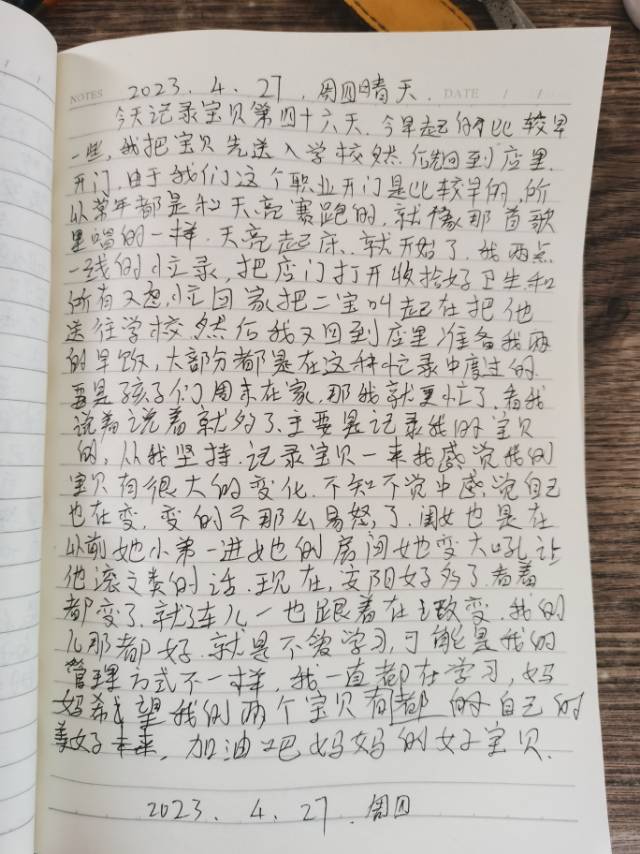 NOTES 2023.4.27.周四晴天. DATE / /
今天记录宝贝第四十六天.今早起的有比较早
一些,我把宝贝先送入学校然后回到店里.
开门.由于我们这个职业开门是比较早的,所
以常年都是和天亮赛跑的,就像那首歌
里唱的一样.天亮起床.就开始了.我两点
一线的忙录,把店门打开收拾好卫生和
所有又急忙回家把二宝叫起在把他
送往学校然后我又回到店里准备我两
的早饭,大部分都是在这种忙录中度过的
要是孩子们周末在家,那我就更忙了.看我
说着说着就多了.主要是记录我的宝贝
的,从我坚持.记录宝贝一来我感觉我的
宝贝有很大的变化.不知不觉中感觉自己
也在变.变的不那么易怒,了.闺女也是在
以前她小弟一进她的房间她也变大吼让
他滚之类的话.现在,安阳好多了.看着
都变了.就连儿一也跟着在改变.我的
儿那都好.就是不爱学习,可能是我的
管理方式不一样,我一直都在学习,妈
妈希望我的两个宝贝有都的自己的
美好未来.加油吧妈妈的好宝贝.
2023.4.27.周四